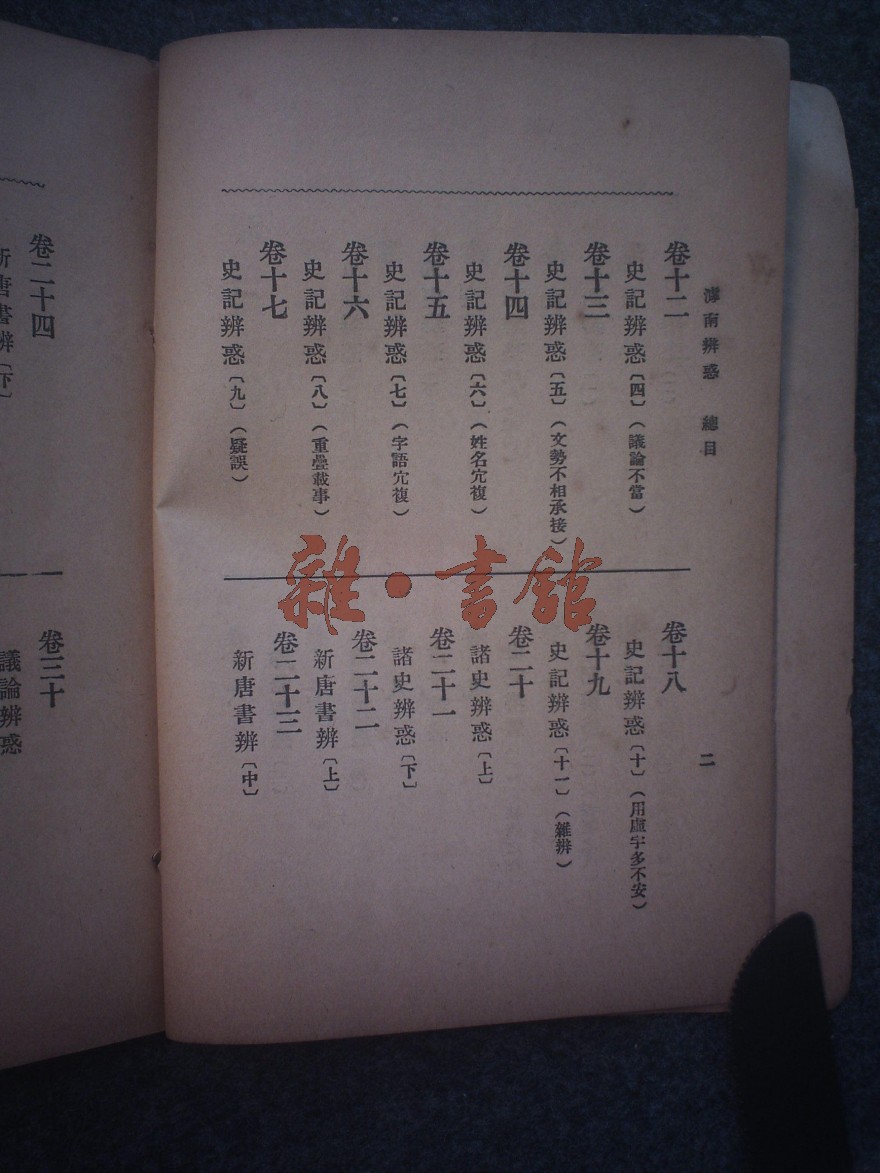 滹南辨惑 總目 二
卷十二
史記辨惑〔四〕(議論不當)
卷十三
史記辨惑〔五〕(文勢不相承接)
卷十四
史記辨惑〔六〕(姓名宂複)
卷十五
史記辨惑〔七〕(字語宂複)
卷十六
史記辨惑〔八〕(重疊載事)
卷十七
史記辨惑〔九〕(疑誤)
卷十八
史記辨惑〔十〕(用虛字多不安)
卷十九
史記辨惑〔十一〕(雜辨)
卷二十
諸史辨惑〔上〕
卷二十一
諸史辨惑〔下〕
卷二十二
新唐書辨〔上〕
卷二十三
新唐書辨〔中〕
卷二十四
新唐書辨〔下〕
卷三十
議論辨惑
雜·書館